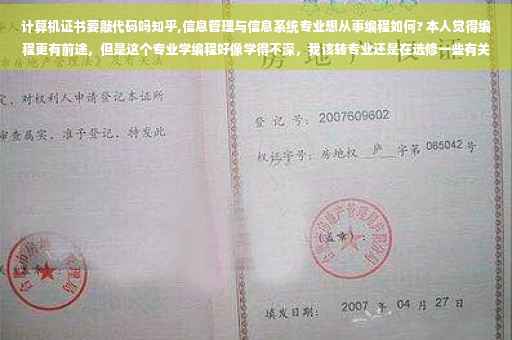 计算机证书要敲代码吗知乎,信息管理与信息系统专业想从事编程如何? 本人觉得编
程更有前途，但是这个专业学编程好像学得不深，我该转专业还是在选修一些有关
定，对权利人申请登记本证所
审查属实，准予登记，特发此
登 记 号：2007609602
权证字号：房地权 庐 字第 065042 号
(盖章)：
填发日期： 2007 年 04 月 27 日